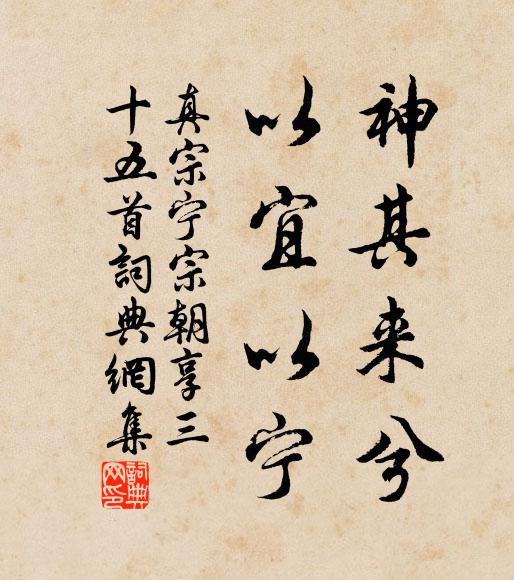 神其来兮
以宜以宁
真宗宁宗朝享三
十五首詞典網集
詞典
网印